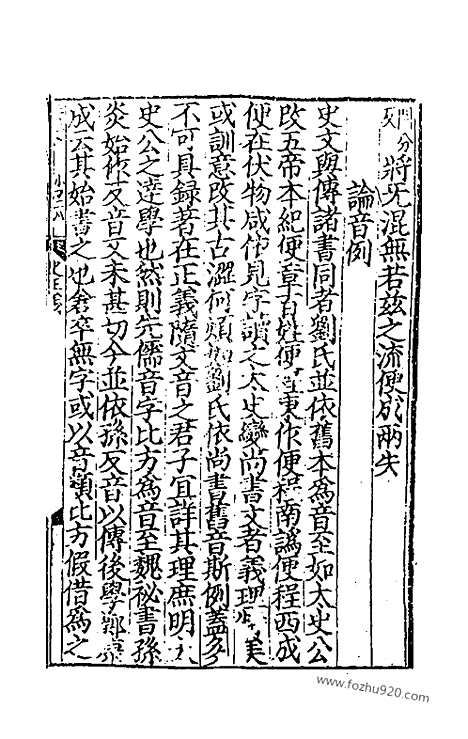 門分
又將旡混無若兹之流便成兩失
論音例
史文與傳諸書同者劉氏並依舊本爲音至如太史公
改五帝本紀便章百姓便程東作便程南譌便程西成
便在伏物咸作見字讀之太史變尚書文者義理
或訓意改其古澀何煩如劉氏依尚書舊音斯例蓋多
不可具録著在正義隨文音之君子宜詳其理庶明
史公之達學也然則先儒音字比方爲音至魏祕書孫
炎始作反音又未甚切今並依孫反音以傳後學鄭
成云其始書之也倉卒無字或以音類比方假借爲之
www.fozhu920.com